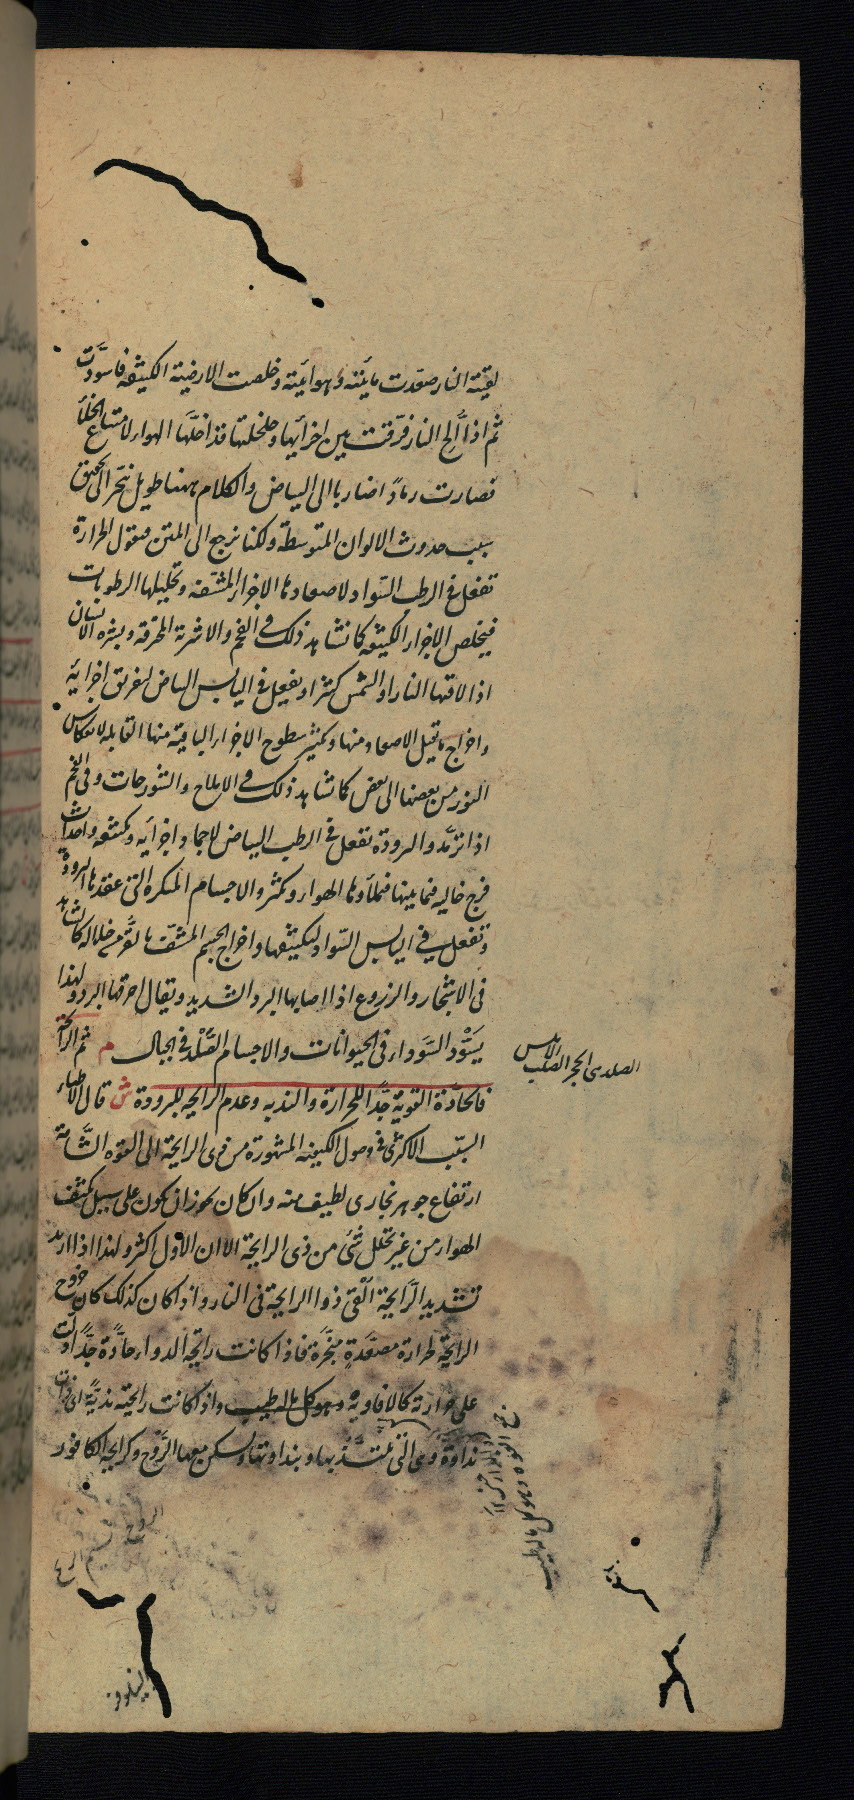 لقيته النار صعّدت مائيته وهوائيته وخلصت الارضية الكثيفة فاسودّت
ثم اذا ألحّ النار فرّقت بين اجزائها وخلخلتها فداخلها الهواء لامتناع الخلأ
فصارت رمادًا ضاربا الى البياض والكلام ههنا طويل الى تحقيق
سبب حدوث الالوان المتوسطة ولكنا نرجع الى المتن فنقول الحرارة
تفعل في الرطب السواد لاصعادها الاجزاء المشفة وتحليلها الرطوبات
فيخلص الاجزاء الكثيفة كما نشاهد ذلك في الفحم والاشربة المحرقة وبشرة الانسان
اذا لاقتها النار او الشمس كثيرا وتفعل في اليابس البياض لتفريق اجزائه
واخراج ما يقبل الاصعاد منها وتكثير سطوح الاجزاء الباقية منها القابلة لانعكاس
النور من بعضها الى بعض كما نشاهد ذلك في الاملاح والنورجات وفي الفحم
اذا ترمّد والبرودة تفعل في الرطب البياض لاجماد اجزائه وتكثيفه واحداث
فرج خالية فيما بينها فيملأوها الهواء وتكثر والاجسام المنكرة التي عقدها البرودة
وتفعل في اليابس السواد لتكثيفها واخراج الجسم المشف بالقوة من خلاله كما نشاهد
في الاشجار والزروع اذا اصابها البرد الشديد ويقال احرقها البرد ولهذا
يسوّد السوداء في الحيوانات والاجسام الصلدة في الجبال م ثم الرائحة
فالحادة القوية جدًّا للحرارة والندية وعدم الرايحة للبرودة ش قال الاطباء
السبب الاكثرى في وصول الكيفية المشهورة من ذى الرايحة الى القوة الشامّة
ارتفاع جوهر بخارى لطيف منه وان كان يجوز ان يكون على سبيل تكيف
الهواء من غير تحلل شئ من ذى الرايحة الا ان الاول اكثر ولهذا اذا اريد
تشديد الرايحة القي ذو الرايحة في النار واذا كان كذلك كان خروج
الرايحة لحرارة مصعّدة مبخّرة فاذا كانت رايحة الدواء حادّة جدًّا دلت
على حرارته كالافاوية وهو كل ما له طيب واذا كانت رايحته نديّة اى ذات
نداوة وهى التى يلتذّ بها وبنداوتها ويسكن معها الرّوح كرايحة الكافور
الصلد بى الحجر الصلب الاملس
والنيلوفر